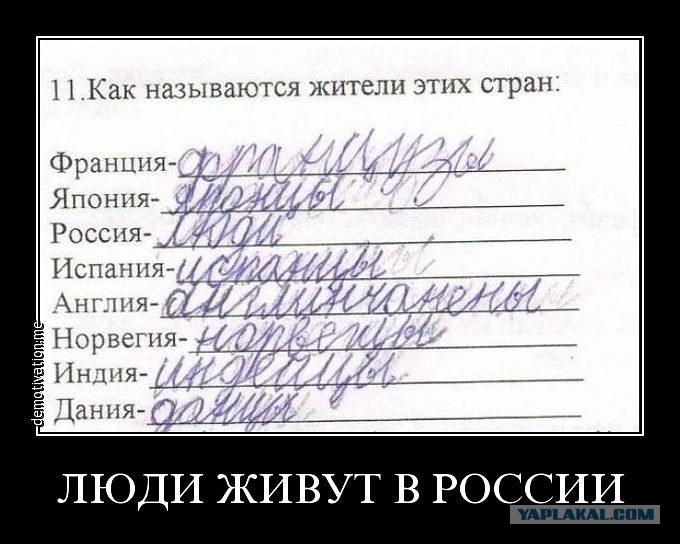 11.Как называются жители этих стран:
Франция-французы
Япония-японцы
Россия-люди
Испания-испанцы
Англия-англинчанены
Норвегия-норвегцы
Индия-индейцы
Дания-данцы
demotivation.me
ЛЮДИ ЖИВУТ В РОССИИ
YAPLAKAL.COM